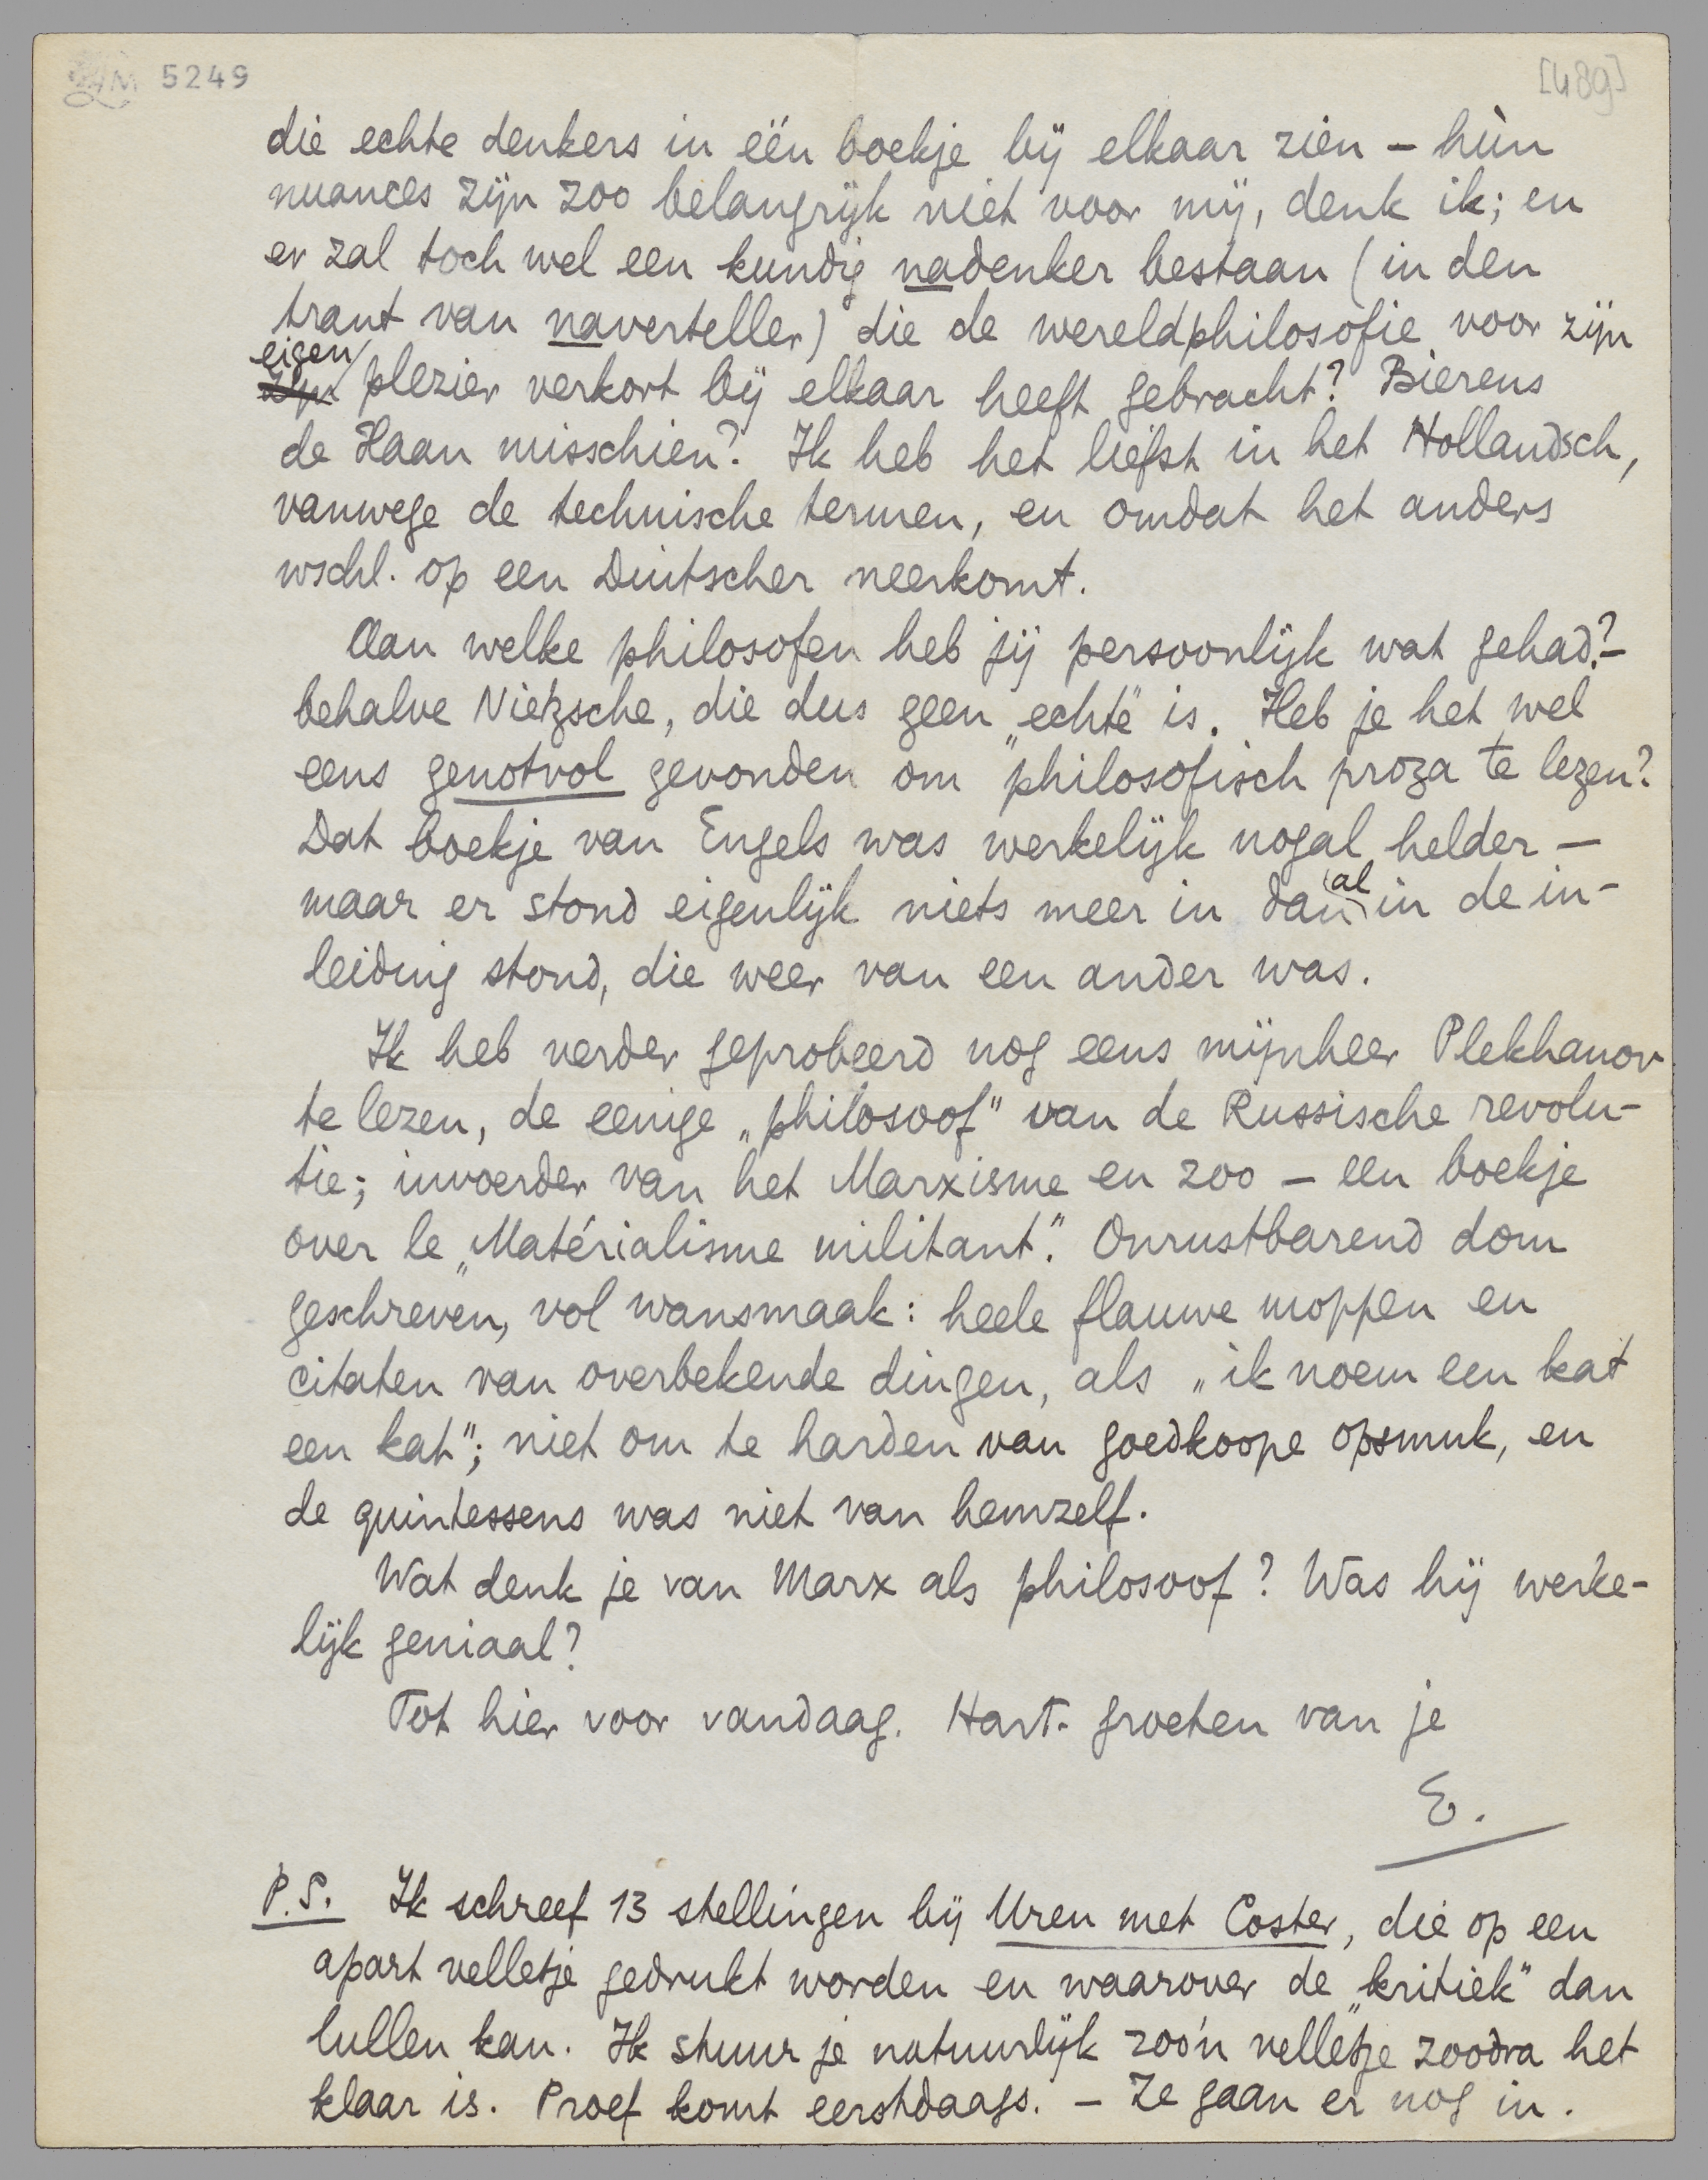 LM 5249
[489]
die echte denkers in één boekje bij elkaar zien – hùn
nuances zijn zoo belangrijk niet voor mij, denk ik; en
er zal toch wel een kundig nadenker bestaan (in den
trant van naverteller) die de wereldphilosofie voor zijn
eigen
zijn plezier verkort bij elkaar heeft gebracht? Bierens
de Haan misschien? Ik heb het liefst in het Hollandsch,
vanwege de technische termen, en omdat het anders
wschl. op een Duitscher neerkomt.
Aan welke philosofen heb jij persoonlijk wat gehad? –
behalve Nietzsche, die dus geen „echte" is. Heb je het wel
eens genotvol gevonden om philosofisch proza te lezen?
Dat boekje van Engels was werkelijk nogal helder –
al
maar er stond eigenlijk niets meer in dan in de in-
leiding stond, die weer van een ander was.
Ik heb verder geprobeerd nog eens mijnheer Plekhanov
te lezen, de eenige „philosoof" van de Russische revolu-
tie; invoerder van het Marxisme en zoo – een boekje
over le „Matérialisme militant". Onrustbarend dom
geschreven, vol wansmaak: heele flauwe moppen en
citaten van overbekende dingen, als „ik noem een kat
een kat"; niet om te harden van goedkoope opsmuk, en
de quintessens was niet van hemzelf.
Wat denk je van Marx als philosoof? Was hij werke-
lijk geniaal?
Tot hier voor vandaag. Hart. groeten van je
E.
P.S. Ik schreef 13 stellingen bij Uren met Coster, die op een
apart velletje gedrukt worden en waarover de „kritiek" dan
lullen kan. Ik stuur je natuurlijk zoo'n velletje zoodra het
klaar is. Proef komt eerstdaags. – Ze gaan er nog in.